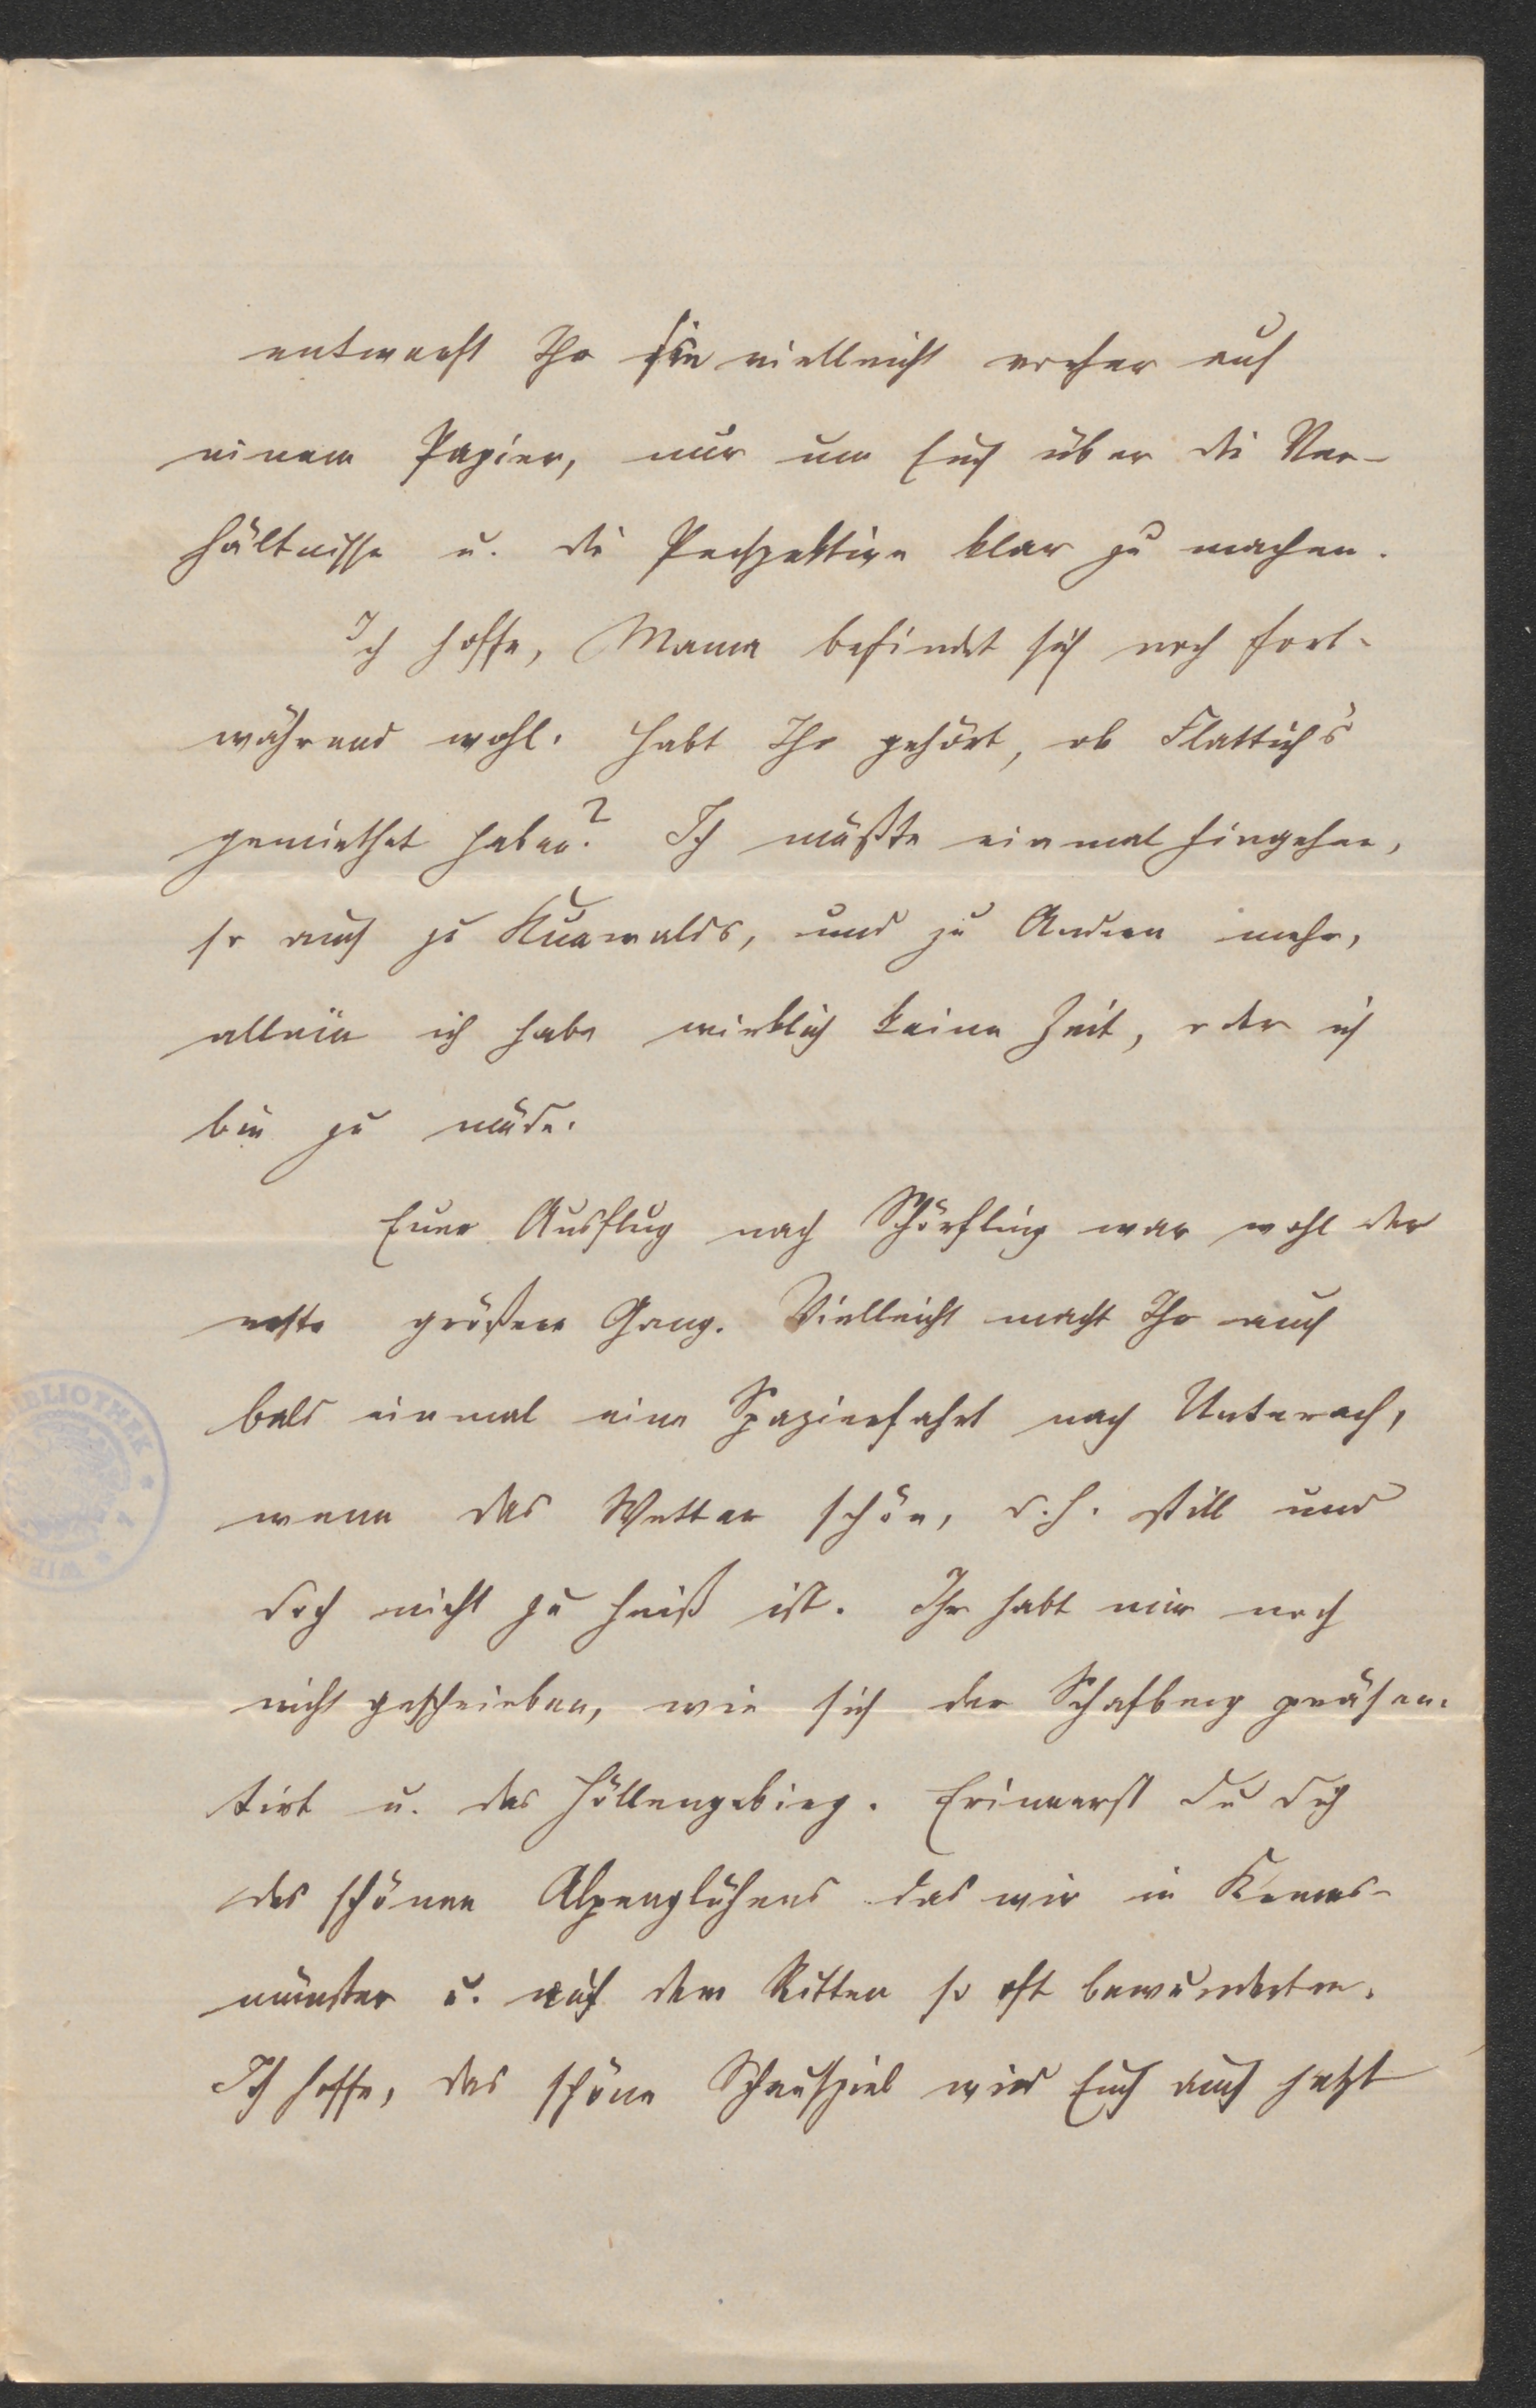 entwerft Ihr sie vielleicht vorher auf
einem Papier, nur um Euch über die Ver-
hältnisse u. die Perspektive klar zu machen.
Ich hoffe, Mama befindet sich noch fort-
während wohl. Habt Ihr gehört, ob Flattich's
gemiethet haben? Ich müßte einmal hingehen,
so auch zu Kuwalds, und zu Andern mehr,
allein ich habe wirklich keine Zeit, oder ich
bin zu müde.
Euer Ausflug nach Schörfling war wohl der
erste größere Gang. Vielleicht macht Ihr auch
bald einmal eine Spazierfahrt nach Unterach,
wenn das Wetter schön, d.h. still und
doch nicht zu heiß ist. Ihr habt mir noch
nicht geschrieben, wie sich der Schafberg präsen-
tirt u. das Höllengebirg. Erinnerst Du Dich
des schönen Alpenglühens das wir in Krems-
münster u. auf dem Ritten so oft bewunderten.
Ich hoffe, das schöne Schauspiel wird Euch auch jetzt
BIBLIOTHEK
WIEN